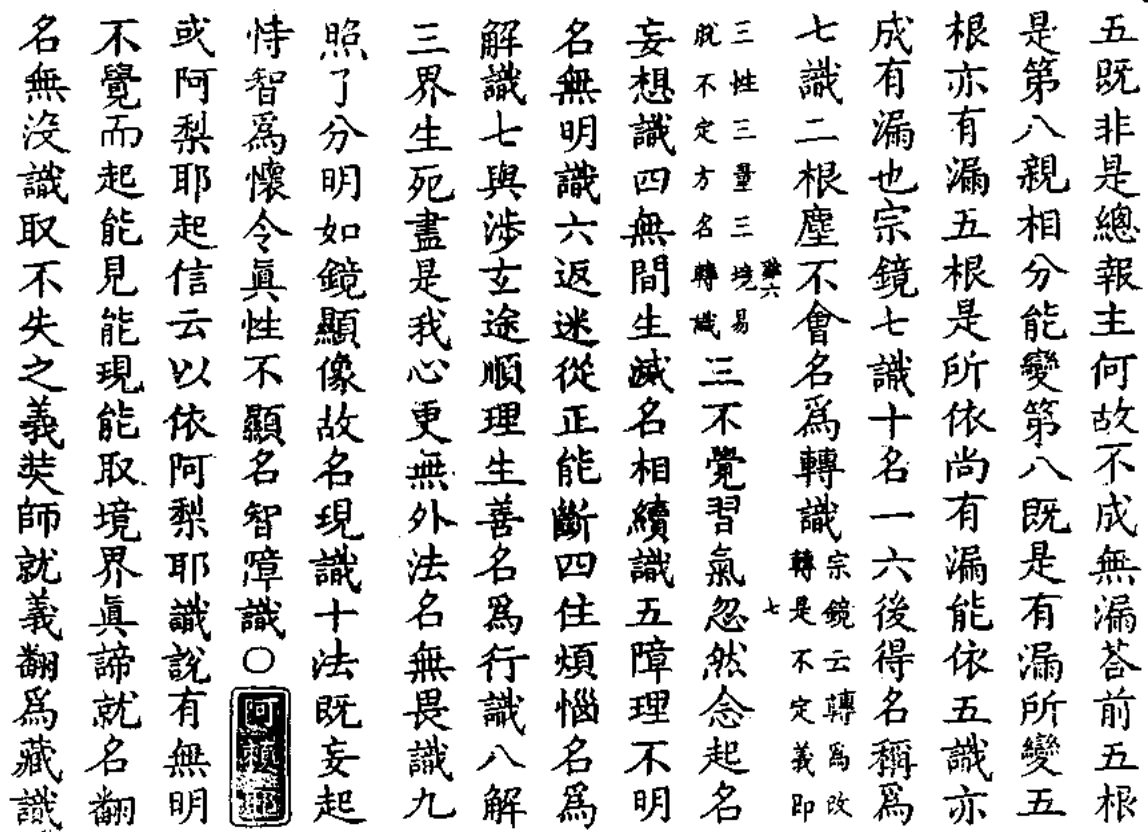 五既非是總報主何故不成無漏荅前五根
是第八親相分能變第八既是有漏所變五
根亦有漏五根是所依尚有漏能依五識亦
成有漏也宗鏡七識十名一六後得名稱爲
七識二根塵不會名爲轉識宗鏡云轉爲改轉是不定義即七
三性三量三境易雖六脫不定方名轉識三不覺習氣忽然念起名
妄想識四無間生滅名相續識五障理不明
名無明識六返迷從正能斷四住煩惱名爲
解識七與涉玄途順理生善名爲行識八解
三界生死盡是我心更無外法名無畏識九
照了分明如鏡顯像故名現識十法既妄起
恃智爲懷令眞性不顯名智障識○阿賴耶
或阿梨耶起信云以依阿梨耶識說有無明
不覺而起能見能現能取境界眞諦就名翻
名無沒識取不失之義奘師就義翻爲藏識